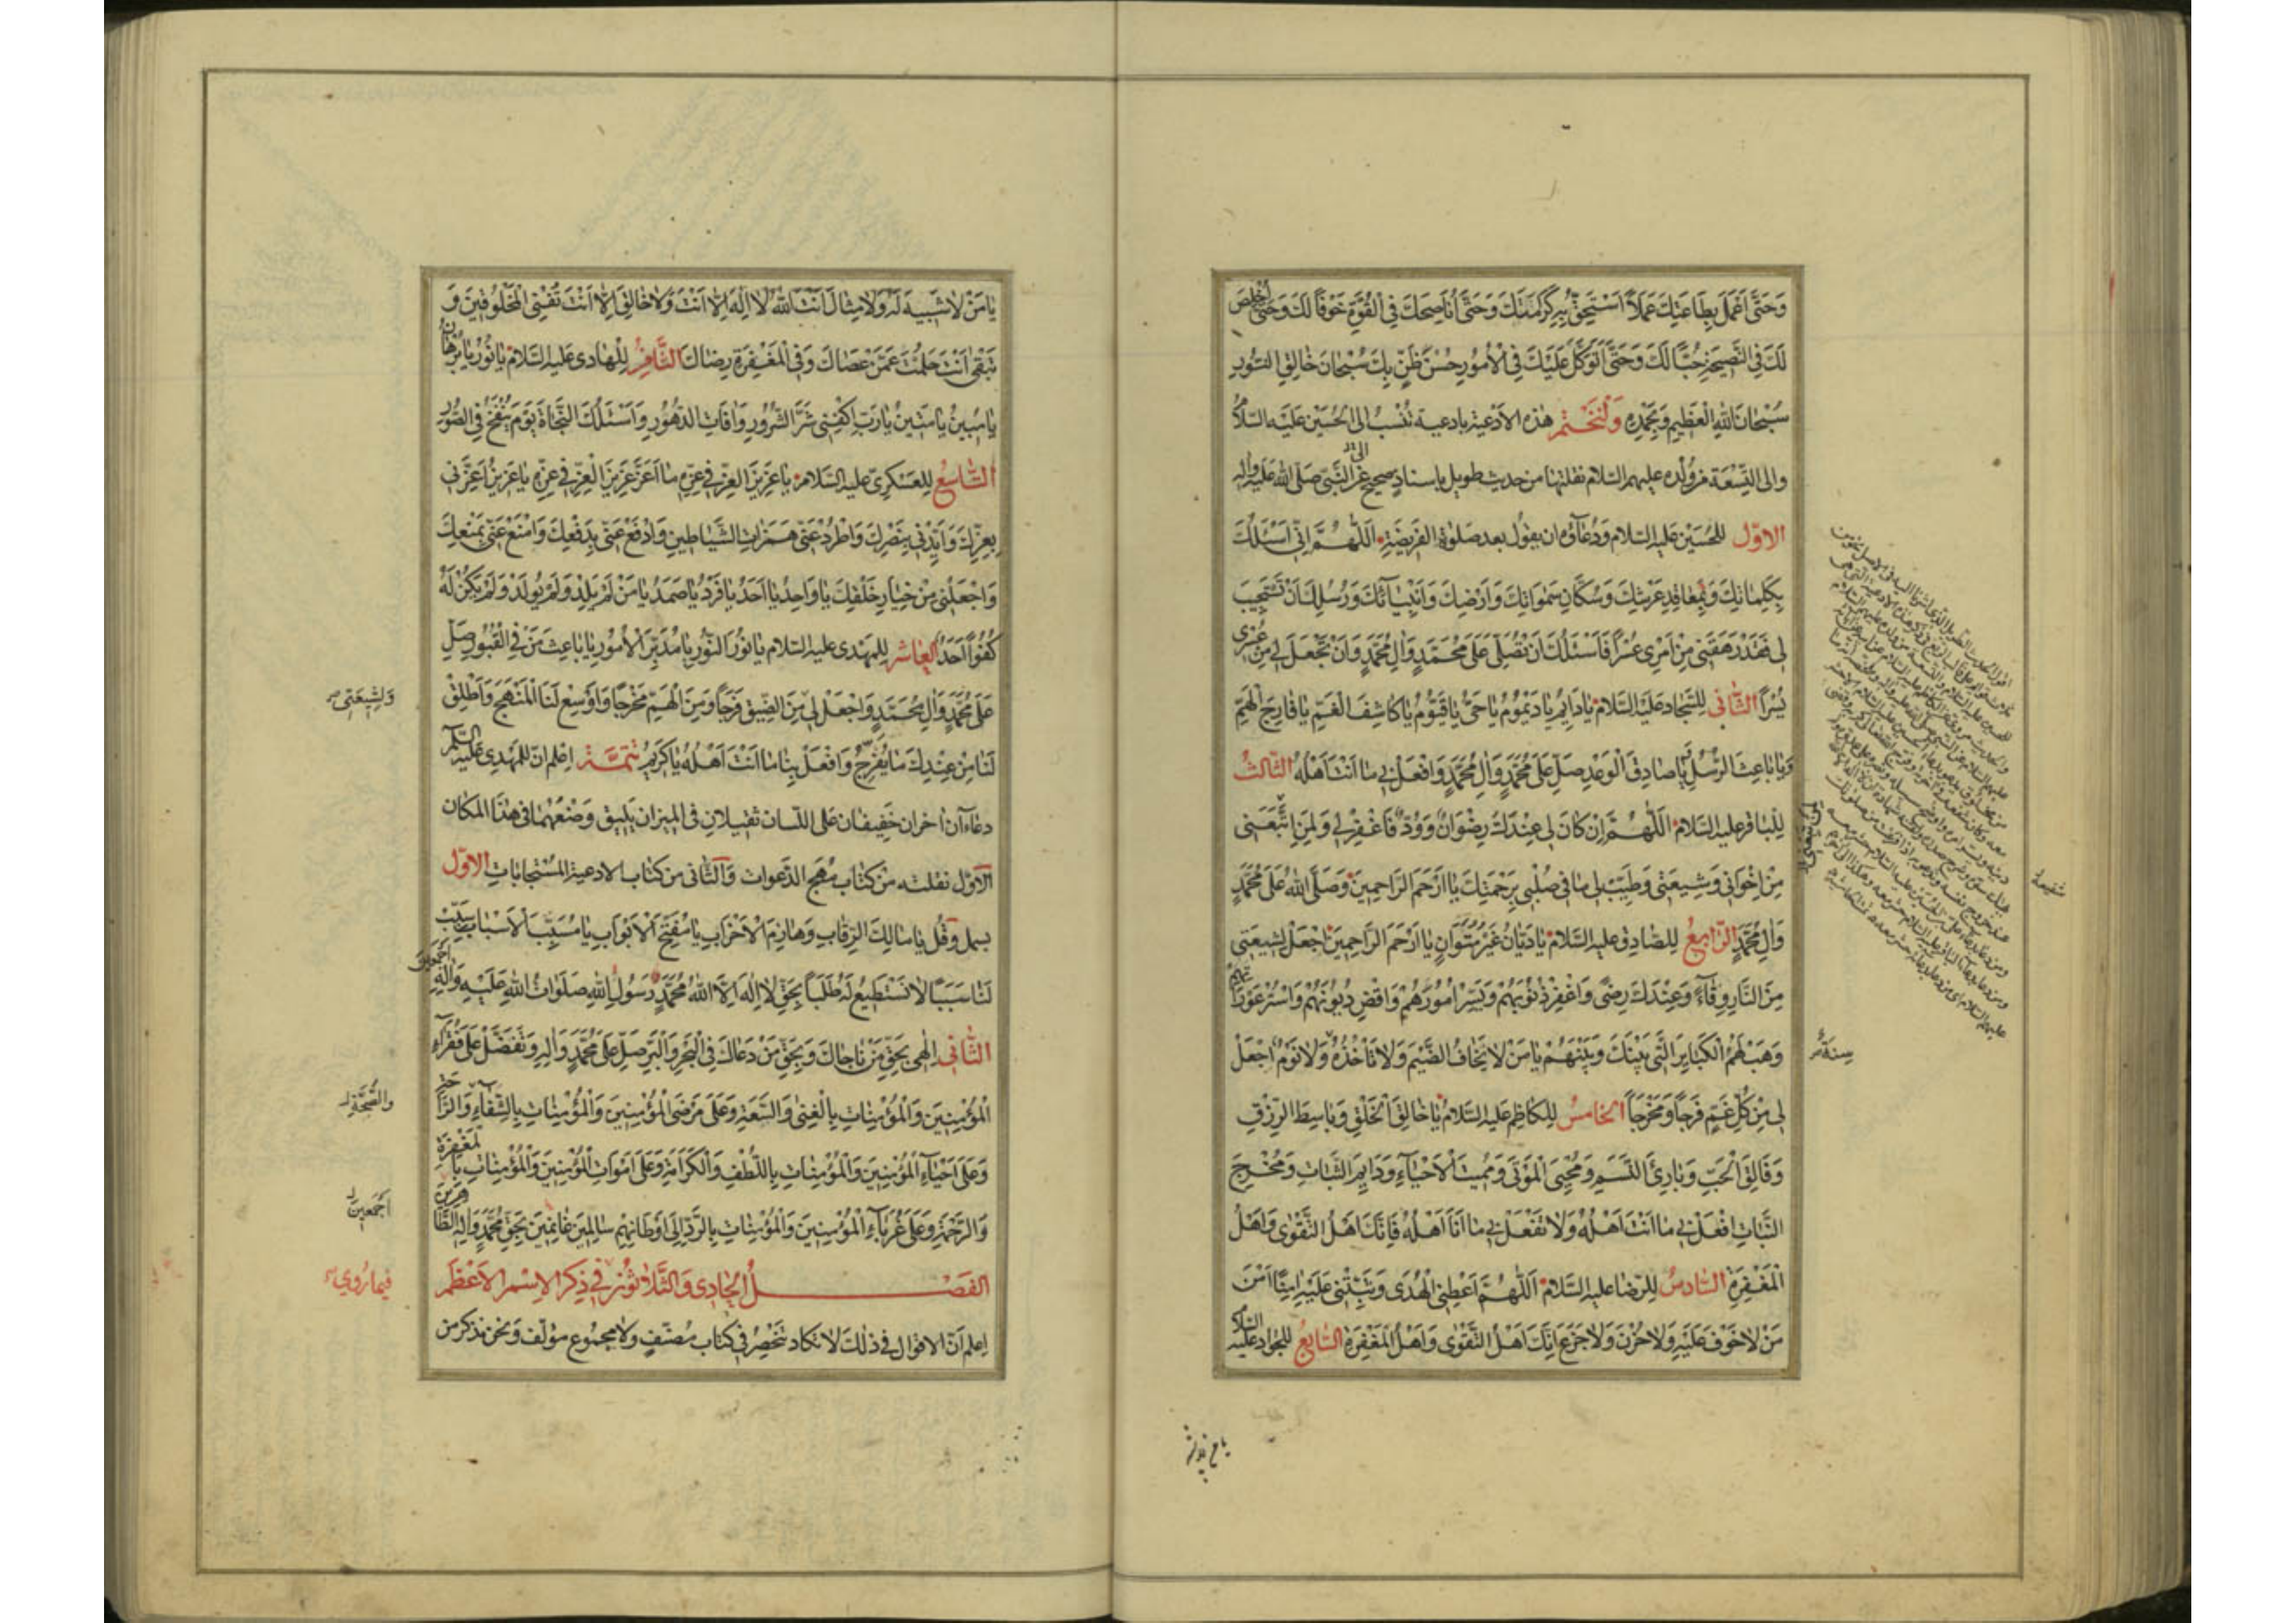 وَحَتَّى اَعْمَلَ بِطَاعَتِكَ عَمَلاً اَسْتَحِقُّ بِهِ كَرَامَتَكَ وَحَتَّى اُنَاصِحَكَ فِى الْقُوَّةِ خَوْفًا لَكَ وَحَتَّى اُخْلِصَ
لَكَ فِى النَّصِيحَةِ حُبًّا لَكَ وَحَتَّى اَتَوَكَّلَ عَلَيْكَ فِى الْاُمُورِ حُسْنَ ظَنٍّ بِكَ سُبْحَانَ خَالِقِ النُّورِ
سُبْحَانَ اللهِ الْعَظِيمِ وَبِحَمْدِهِ وَلْنَخْتِمْ هذه الادعية بادعية تُنْسَبُ الى الحُسَيْن عَلَيْهِ السَّلَامُ
والى التِّسْعَة من وُلْدِه عليهم السلام نقلتها من حديث طويل باسناد صحيح الى النَّبِىّ صَلَّى اللهُ عَلَيْهِ وَآلِهِ
الاوّل للحُسَيْن عليه السّلام وَدُعَاؤه ان يقول بعد صلوة الفريضة اَللّٰهُمَّ اِنِّى اَسْئَلُكَ
بِكَلِمَاتِكَ وَبِمَعَاقِدِ عَرْشِكَ وَسُكَّانِ سَمٰوَاتِكَ وَاَرْضِكَ وَاَنْبِيَآئِكَ وَرُسُلِكَ اَنْ تَسْتَجِيبَ
لِى فَقَدْ رَهَقَنِى مِنْ اَمْرِى عُسْرًا فَاَسْئَلُكَ اَنْ تُصَلِّىَ عَلَى مُحَمَّدٍ وَآلِ مُحَمَّدٍ وَاَنْ تَجْعَلَ لِى مِنْ عُسْرِى
يُسْرًا الثّانى للسَّجاد عَلَيْهِ السَّلَام يَا دَايِمُ يَا دَيْمُومُ يَا حَىُّ يَا قَيُّومُ يَا كَاشِفَ الْغَمِّ يَا فَارِجَ الْهَمِّ
وَيَا بَاعِثَ الرُّسُلِ يَا صَادِقَ الْوَعْدِ صَلِّ عَلَى مُحَمَّدٍ وَآلِ مُحَمَّدٍ وَافْعَلْ بِى مَا اَنْتَ اَهْلُهُ الثّالث
لِلْبَاقر عليه السّلام اَللّٰهُمَّ اِنْ كَانَ لِى عِنْدَكَ رِضْوَانٌ وَوُدٌّ فَاغْفِرْ لِى وَلِمَنِ اتَّبَعَنِى
مِنْ اِخْوَانِى وَشِيعَتِى وَطَيِّبْ لِى مَا فِى صُلْبِى بِرَحْمَتِكَ يَا اَرْحَمَ الرَّاحِمِينَ وَصَلَّى اللهُ عَلَى مُحَمَّدٍ
وَآلِ مُحَمَّدٍ الرَّابِعُ للصَّادِق عليه السّلام يَا دَيَّانُ غَيْرَ مُتَوَانٍ يَا اَرْحَمَ الرَّاحِمِينَ اجْعَلْ لِشِيعَتِى
مِنَ النَّارِ وِقَآءً وَعِنْدَكَ رِضًى وَاغْفِرْ ذُنُوبَهُمْ وَيَسِّرْ اُمُورَهُمْ وَاقْضِ دُيُونَهُمْ وَاسْتُرْ عَوْرَاتِهِمْ
وَهَبْ لَهُمُ الْكَبَايِرَ الَّتِى بَيْنَكَ وَبَيْنَهُمْ يَا مَنْ لَا يَخَافُ الضَّيْمَ وَلَا تَأْخُذُهُ وَلَا نَوْمٌ اجْعَلْ
سِنَةٌ
لِى مِنْ كُلِّ غَمٍّ فَرَجًا وَمَخْرَجًا الخَامِسُ لِلكاظِم عليه السّلام يَا خَالِقَ الْخَلْقِ وَبَاسِطَ الرِّزْقِ
وَفَالِقَ الْحَبِّ وَبَارِئَ النَّسَمِ وَمُحْيِىَ الْمَوْتَى وَمُمِيتَ الْاَحْيَآءِ وَدَايِمَ الثَّبَاتِ وَمُخْرِجَ
النَّبَاتِ افْعَلْ بِى مَا اَنْتَ اَهْلُهُ وَلَا تَفْعَلْ بِى مَا اَنَا اَهْلُهُ فَاِنَّكَ اَهْلُ التَّقْوٰى وَاَهْلُ
الْمَغْفِرَةِ السَّادسُ لِلرّضا عليه السّلام اَللّٰهُمَّ اَعْطِنِى الْهُدَى وَثَبِّتْنِى عَلَيْهِ اٰمِنًا اَمْنَ
مَنْ لَا خَوْفَ عَلَيْهِ وَلَا حُزْنَ وَلَا جَزَعَ اِنَّكَ اَهْلُ التَّقْوٰى وَاَهْلُ الْمَغْفِرَةِ السَّابعُ للجواد عليه السلام
يَا مَنْ لَا شَبِيهَ لَهُ وَلَا مِثَالَ اَنْتَ اللهُ لَا اِلٰهَ اِلَّا اَنْتَ وَلَا خَالِقَ اِلَّا اَنْتَ تُفْنِى الْمَخْلُوقِينَ وَ
تَبْقٰى اَنْتَ حَلُمْتَ عَمَّنْ عَصَاكَ وَفِى الْمَغْفِرَةِ رِضَاكَ الثَّامِنُ لِلْهَادى عَلَيْهِ السَّلَام يَا نُورُ يَا بُرْهَانُ
يَا مُبِينُ يَا مَتِينُ يَا رَبِّ اكْفِنِى شَرَّ الشُّرُورِ وَآفَاتِ الدُّهُورِ وَاَسْئَلُكَ النَّجَاةَ يَوْمَ يُنْفَخُ فِى الصُّورِ
التَّاسِعُ لِلعَسْكَرِىّ عليه السّلام يَا عَزِيزَ الْعِزِّ فِى عِزِّهِ مَا اَعَزَّ عَزِيزَ الْعِزِّ فِى عِزِّهِ يَا عَزِيزُ اَعِزَّنِى
بِعِزِّكَ وَاَيِّدْنِى بِنَصْرِكَ وَاطْرُدْ عَنِّى هَمَزَاتِ الشَّيَاطِينِ وَادْفَعْ عَنِّى بِدَفْعِكَ وَامْنَعْ عَنِّى بِمَنْعِكَ
وَاجْعَلْنِى مِنْ خِيَارِ خَلْقِكَ يَا وَاحِدُ يَا اَحَدُ يَا فَرْدُ يَا صَمَدُ يَا مَنْ لَمْ يَلِدْ وَلَمْ يُولَدْ وَلَمْ يَكُنْ لَهُ
كُفُوًا اَحَدٌ العَاشر لِلمَهْدى عليه السّلام يَا نُورَ النُّورِ يَا مُدَبِّرَ الْاُمُورِ يَا بَاعِثَ مَنْ فِى الْقُبُورِ صَلِّ
عَلَى مُحَمَّدٍ وَآلِ مُحَمَّدٍ وَاجْعَلْ لِى مِنَ الضِّيقِ فَرَجًا وَمِنَ الْهَمِّ مَخْرَجًا وَاَوْسِعْ لَنَا الْمَنْهَجَ وَاَطْلِقْ
وَلِشِيعَتِى
لَنَا مِنْ عِنْدِكَ مَا يُفَرِّجُ وَافْعَلْ بِنَا مَا اَنْتَ اَهْلُهُ يَا كَرِيمُ تَتِمَّة اعلم انّ للمَهْدى عليه السلام
دعاءآن اخران خَفِيفان على اللّسان ثقيلان فى الميزان يليق وَضْعُهُمَا فى هذا المكان
الاوّل نقلته من كتاب مُهَج الدّعوات وَالثّانى من كتاب الادعية المُسْتجابات الاوّل
بسمل وقُل يَا مَالِكَ الرِّقَابِ وَهَازِمَ الْاَحْزَابِ يَا مُفَتِّحَ الْاَبْوَابِ يَا مُسَبِّبَ الْاَسْبَابِ سَبِّبْ
لَنَا سَبَبًا لَا نَسْتَطِيعُ لَهُ طَلَبًا بِحَقِّ لَا اِلٰهَ اِلَّا اللهُ مُحَمَّدٌ رَسُولُ اللهِ صَلَوَاتُ اللهِ عَلَيْهِ وَآلِهِ اَجْمَعِينَ
الثَّانِى اِلٰهِى بِحَقِّ مَنْ نَاجَاكَ وَبِحَقِّ مَنْ دَعَاكَ فِى الْبَحْرِ وَالْبَرِّ صَلِّ عَلَى مُحَمَّدٍ وَآلِهِ وَتَفَضَّلْ عَلَى فُقَرَآءِ
الْمُؤْمِنِينَ وَالْمُؤْمِنَاتِ بِالْغِنٰى وَالسَّعَةِ وَعَلَى مَرْضَى الْمُؤْمِنِينَ وَالْمُؤْمِنَاتِ بِالشِّفَآءِ وَالرَّاحَةِ
والصِّحَّةِ
وَعَلَى اَحْيَآءِ الْمُؤْمِنِينَ وَالْمُؤْمِنَاتِ بِاللُّطْفِ وَالْكَرَامَةِ وَعَلَى اَمْوَاتِ الْمُؤْمِنِينَ وَالْمُؤْمِنَاتِ بِالْمَغْفِرَةِ
وَالرَّحْمَةِ وَعَلَى غُرَبَآءِ الْمُؤْمِنِينَ وَالْمُؤْمِنَاتِ بِالرَّدِّ اِلَى اَوْطَانِهِمْ سَالِمِينَ غَانِمِينَ بِحَقِّ مُحَمَّدٍ وَآلِهِ الطَّاهِرِينَ
اَجْمَعِينَ
الفَصْلُ الحَادِى وَالثَّلَاثُونَ فى ذِكْرِ الاِسْمِ الاَعْظَمِ
فيما رُوِىَ
اعلم اَنّ الاقوال فى ذلكَ لا تكاد تَنْحَصِرُ فى كتاب مصنّفٍ ولا مجموع مؤلّف ونحن نذكر من